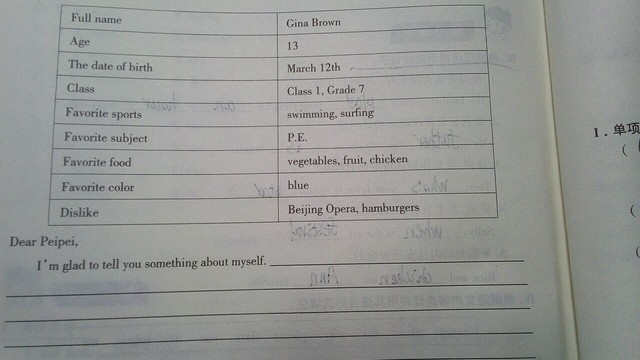 Full name Gina Brown
Age 13
The date of birth March 12th
Class Class 1, Grade 7
Favorite sports swimming, surfing
Favorite subject P.E.
Favorite food vegetables, fruit, chicken
Favorite color blue
Dislike Beijing Opera, hamburgers
Dear Peipei,
I'm glad to tell you something about myself.
I. 单项
(
(
(